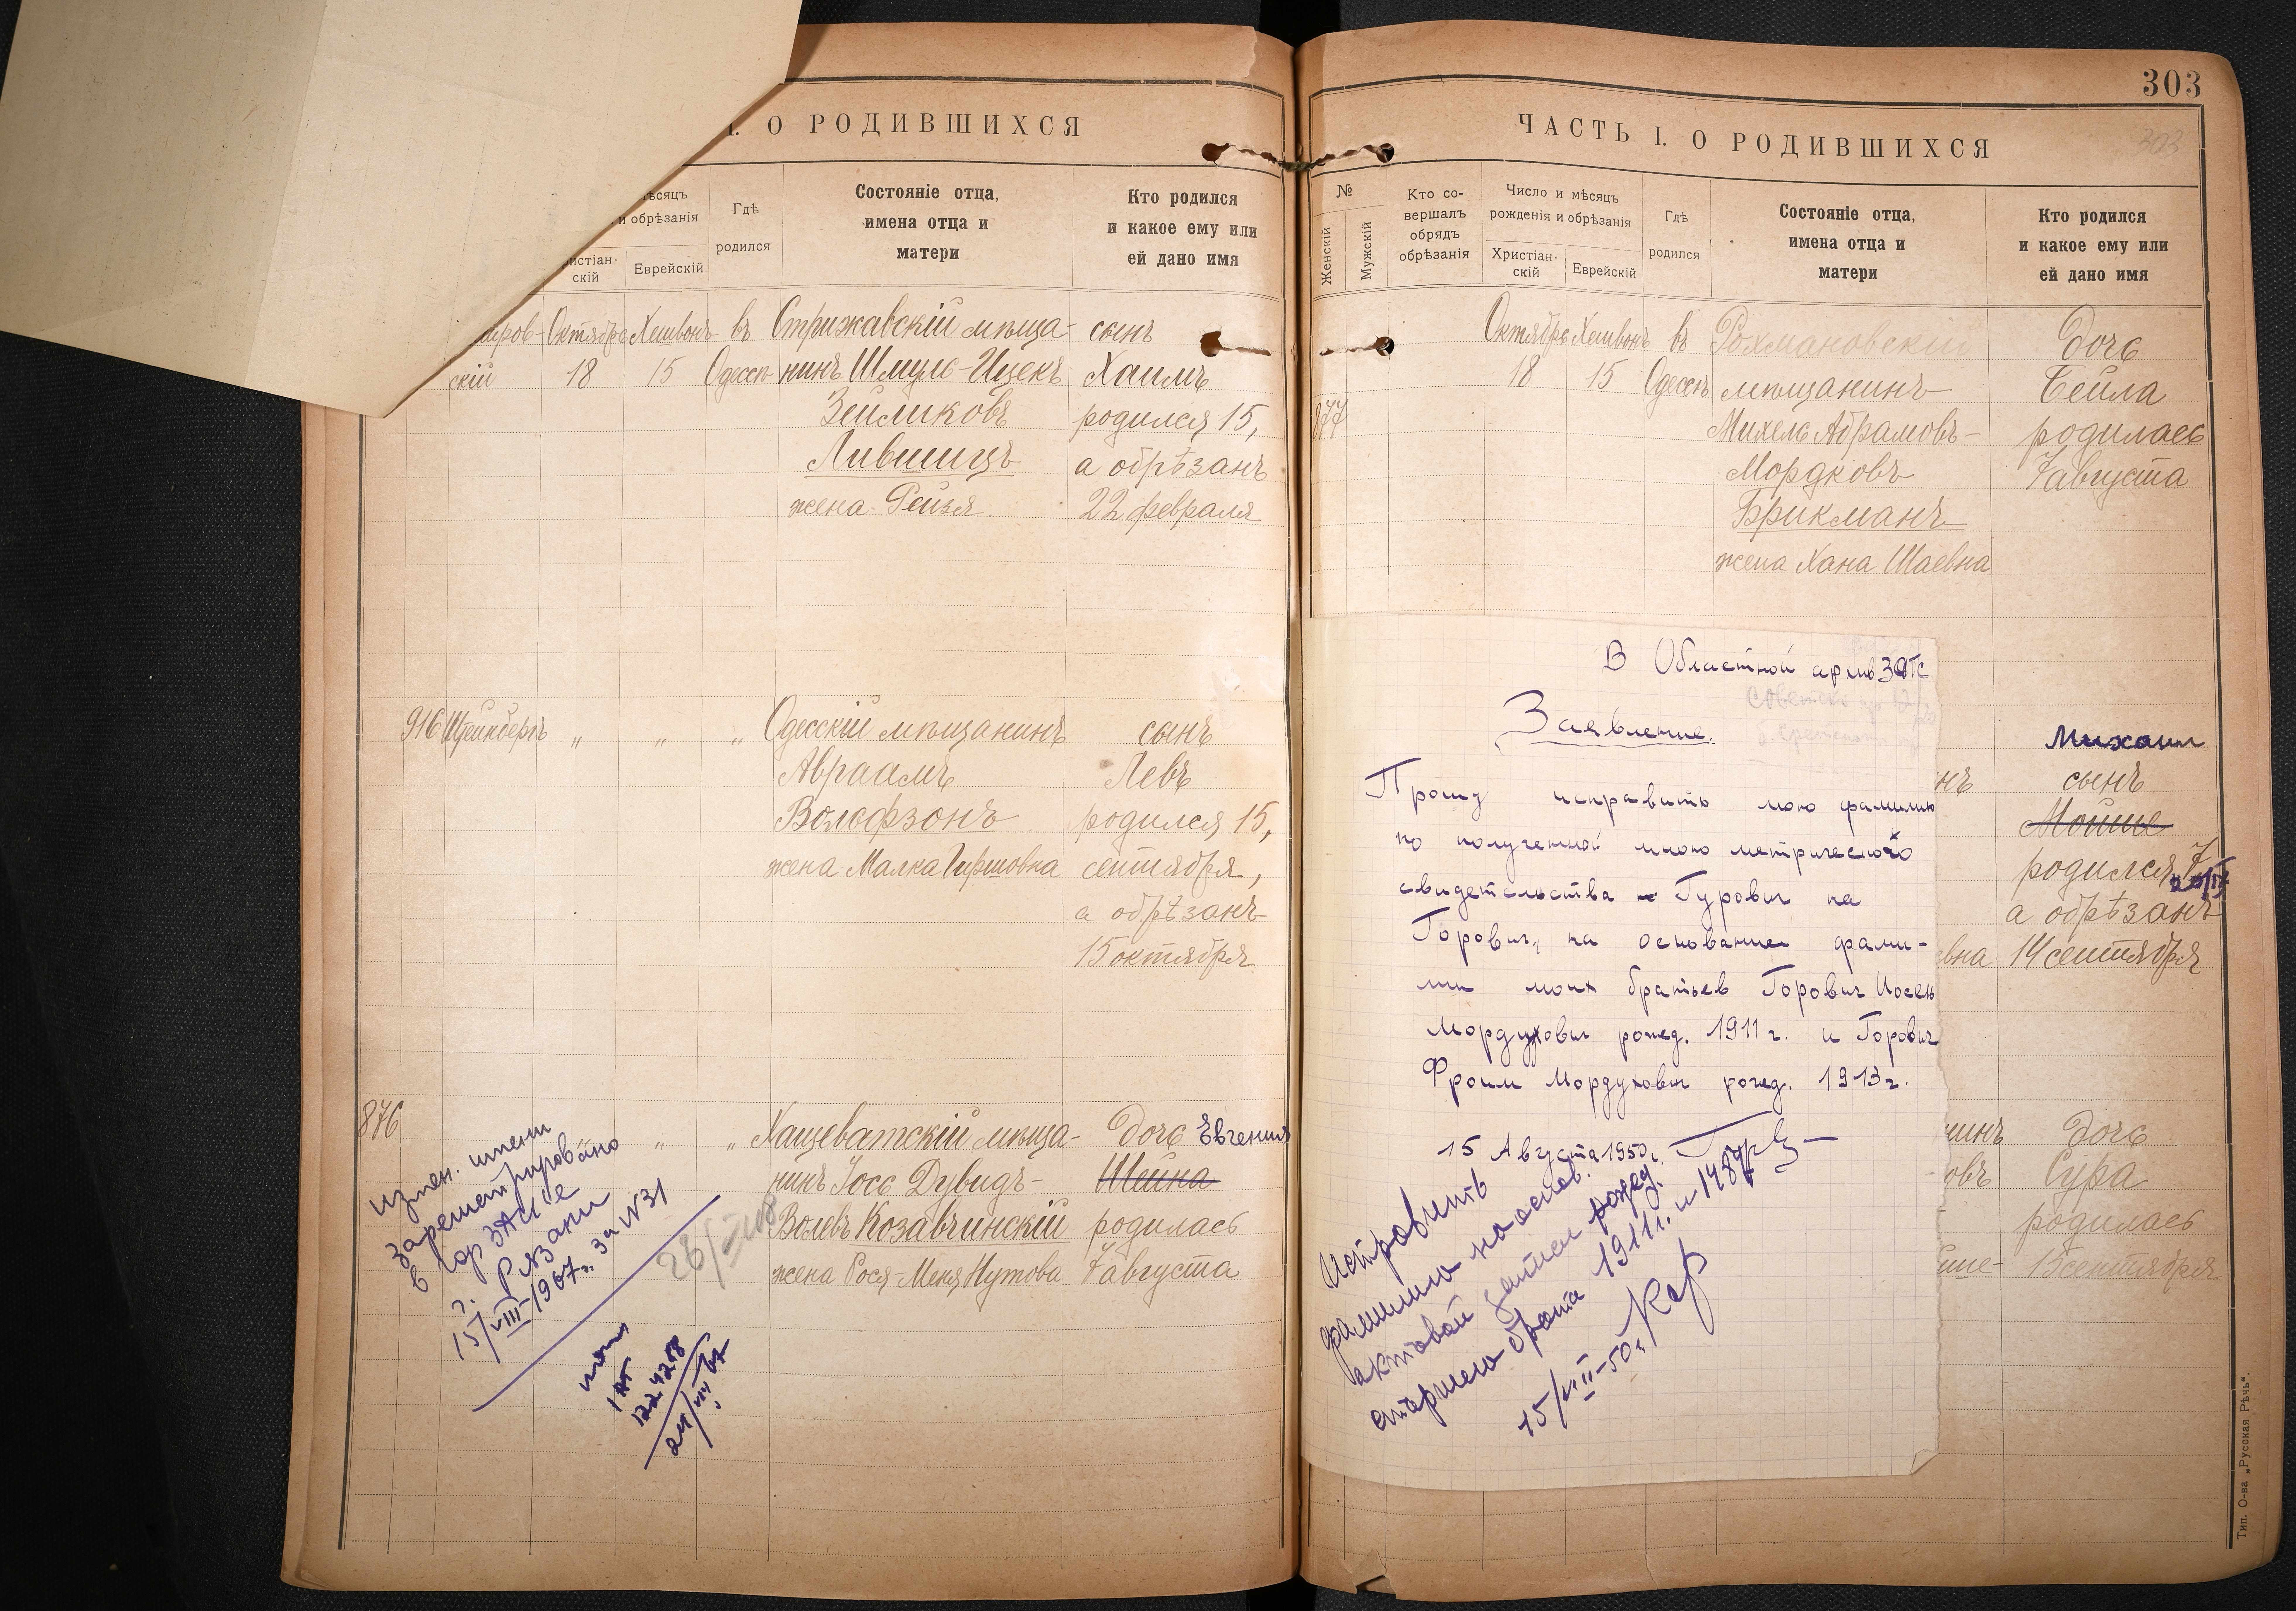 І. О РОДИВШИХСЯ
ѣсяцъ
и обрѣзанія
истіан-
скій
Еврейскій
Гдѣ
родился
Состояніе отца,
имена отца и
матери
Кто родился
и какое ему или
ей дано имя
иров-
скій
Октября
18
Хешвонъ
15
въ
Одессѣ
Стрижавскій мѣща-
нинъ Шмуль-Ицекъ
Зейликовъ
Лившицъ
жена Рейзя
сынъ
Хаимъ
родился 15,
а обрѣзанъ
22 февраля
916 Штейнбергъ " " "
Одесскій мѣщанинъ
Авраамъ
Вольфзонъ
жена Малка Гиршовна
сынъ
Левъ
родился 15,
сентября,
а обрѣзанъ
15 октября
876
" "
Хащеватскій мѣща-
нинъ Іось Дувидъ-
Волевъ Козавчинскій
жена Рося-Меня Нутова
дочь Евгения
Шейна
родилась
7 августа
Измен. имени
зарегистрировано
в гор ЗАГСе
г. Рязани
15/VIII-1967г. за №31
24/VIII 67
303
ЧАСТЬ І. О РОДИВШИХСЯ
303
№
Женскій
Мужскій
Кто со-
вершалъ
обрядъ
обрѣзанія
Число и мѣсяцъ
рожденія и обрѣзанія
Христіан-
скій
Еврейскій
Гдѣ
родился
Состояніе отца,
имена отца и
матери
Кто родился
и какое ему или
ей дано имя
877
Октября
18
Хешвонъ
15
въ
Одессѣ
Рохмановскій
мѣщанинъ
Михель Абрамовъ-
Мордковъ
Брикманъ
жена Хана Шаевна
дочь
Бейла
родилась
7 августа
В Областной архив ЗАГС
Заявление.
Прошу исправить мою фамилию
по полученной мною метрического
свидетельства Гурович на
Горович, на основание фами-
лии моих братьев Горович Иосель
Мордухович рожд. 1911 г. и Горович
Фроим Мордухович рожд. 1913 г.
15 Августа 1950 г.
Исправить
фамилию на основ.
актовой записи рожд.
старшего брата 1911 г. №1487
15/VIII-50 г.
нъ
вна
Михаил
сынъ
Мойше
родился 7
а обрѣзанъ
14 сентября
нинъ
овъ
дочь
Сура
родилась
15 сентября
Тип. О-ва „Русская Рѣчь".